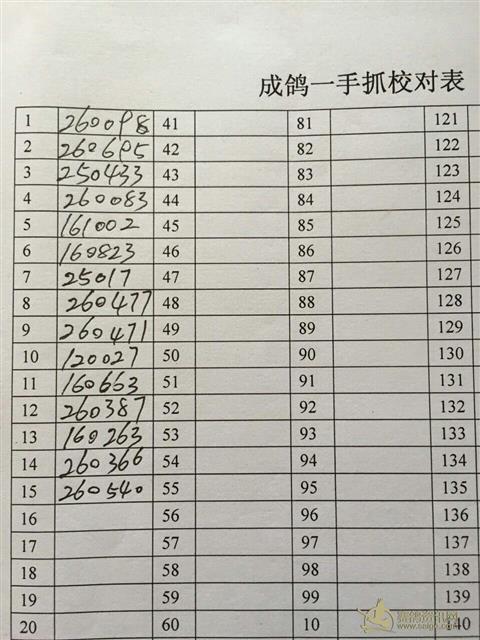 成鸽一手抓校对表
1 260098 41 81 121
2 260695 42 82 122
3 250433 43 83 123
4 260083 44 84 124
5 161002 45 85 125
6 160823 46 86 126
7 25017 47 87 127
8 260477 48 88 128
9 260471 49 89 129
10 120027 50 90 130
11 160663 51 91 131
12 260387 52 92 132
13 160263 53 93 133
14 260366 54 94 134
15 260540 55 95 135
16 56 96 136
17 57 97 137
18 58 98 138
19 59 99 139
20 60 10 140
赛鸽资讯网
www.saige.com